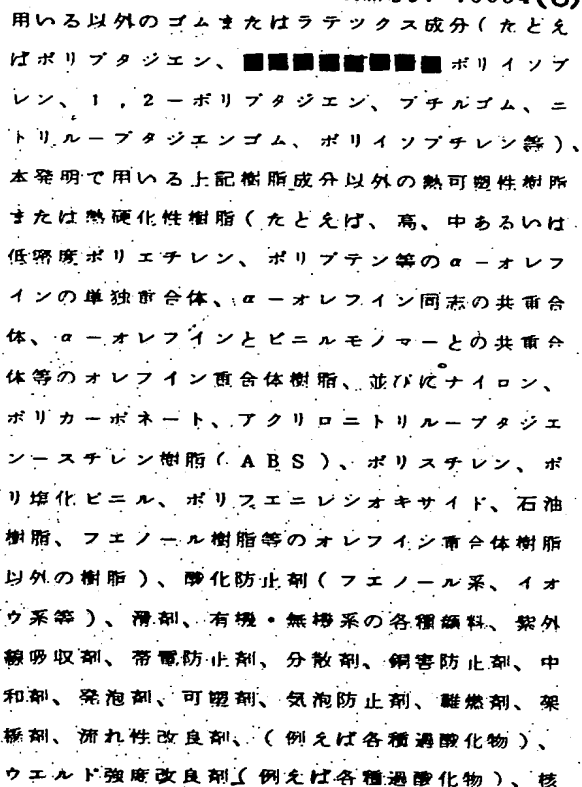 用いる以外のゴムまたはラテックス成分(たとえ
ばポリブタジエン、 ポリイソプ
レン、1,2-ポリブタジエン、ブチルゴム、ニ
トリル-ブタジエンゴム、ポリイソブチレン等)、
本発明で用いる上記樹脂成分以外の熱可塑性樹脂
または熱硬化性樹脂(たとえば、高、中あるいは
低密度ポリエチレン、ポリブテン等のα-オレフ
インの単独重合体、α-オレフイン同志の共重合
体、α-オレフインとビニルモノマーとの共重合
体等のオレフイン重合体樹脂、並びにナイロン、
ポリカーボネート、アクリロニトリル-ブタジエ
ン-スチレン樹脂(ABS)、ポリスチレン、ポ
リ塩化ビニル、ポリフエニレンオキサイド、石油
樹脂、フエノール樹脂等のオレフイン重合体樹脂
以外の樹脂)、酸化防止剤(フエノール系、イオ
ウ系等)、滑剤、有機・無機系の各種顔料、紫外
線吸収剤、帯電防止剤、分散剤、銅害防止剤、中
和剤、発泡剤、可塑剤、気泡防止剤、難燃剤、架
橋剤、流れ性改良剤、(例えば各種過酸化物)、
ウエルド強度改良剤(例えば各種過酸化物)、核